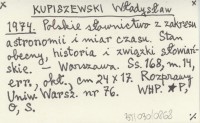 KUPISZEWSKI Władysław
1974. Polskie słownictwo z zakresu
astronomii i miar czasu. Stan
obecny, historia i związki słowiań-
skie. — Warszawa. Ss. 168, m. 14,
err., okł., cm 24 x 17. Rozprawy
Uniw. Warsz. nr 76. WHP. *P,
O, S.